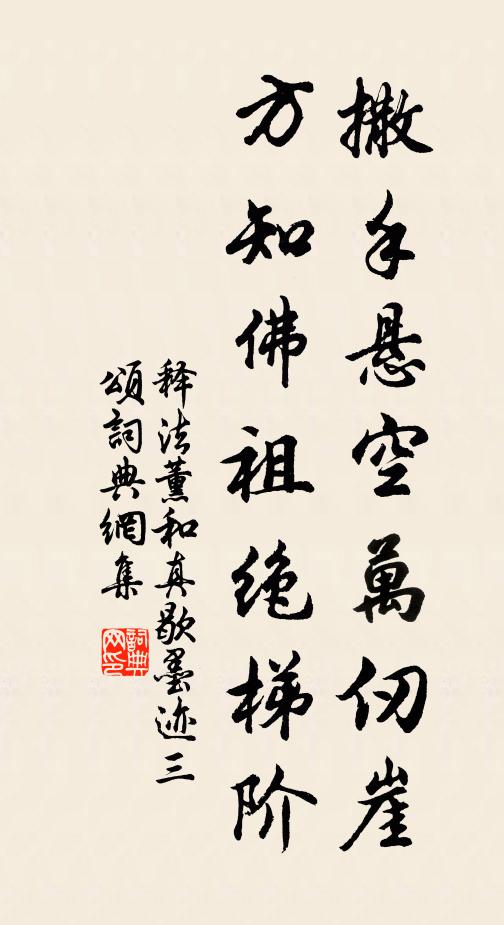 撒手悬空萬仞崖
方知佛祖绝梯阶
释法薰和真歇墨迹三
頌詞典網集
詞典
网印